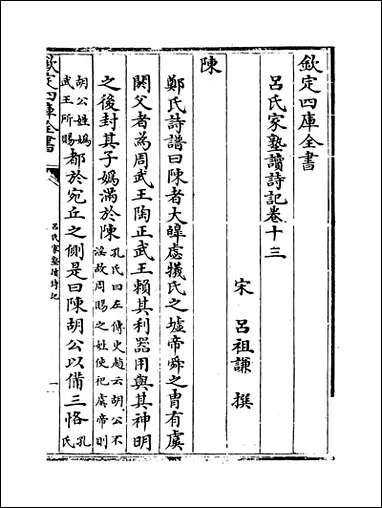 欽定四庫全書
呂氏家塾讀詩記卷十三
宋 呂祖謙 撰
陳
鄭氏詩譜曰陳者大皥虙犧氏之墟帝舜之胄有虞
閼父者為周武王陶正武王賴其利器用與其神明
之後封其子媯滿於陳孔氏曰左傳史趙云胡公不淫故周賜之姓使祀虞帝則
胡公姓媯武王所賜都於宛丘之側是曰陳胡公以備三恪孔氏
欽定四庫全書
呂氏家塾讀詩記
一